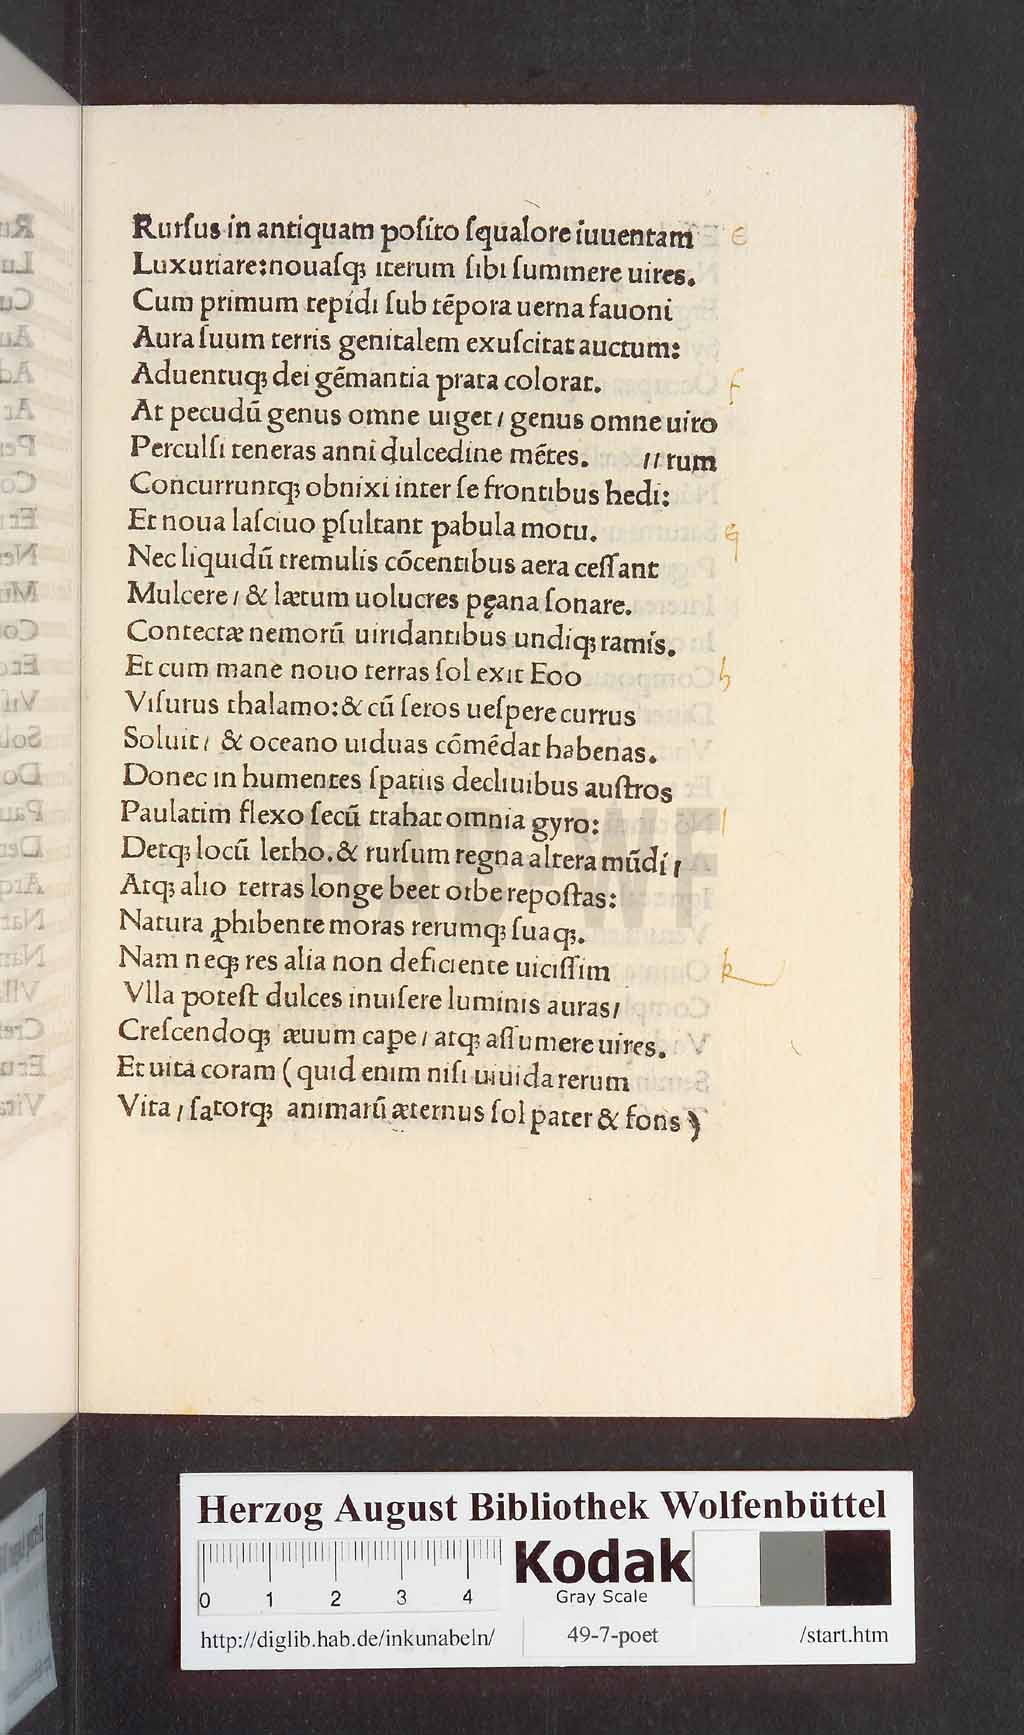 Rurſus in antiquam poſito ſqualore iuuentam e
Luxuriare:nouaſqꝫ iterum ſibi ſummere uires.
Cum primum tepidi ſub tēpora uerna fauoni
Aura ſuum terris genitalem exuſcitat auctum:
Aduentuqꝫ dei gēmantia prata colorat. f
At pecudū genus omne uiget / genus omne uiro
Perculſi teneras anni dulcedine mētes. // rum
Concurruntqꝫ obnixi inter ſe frontibus hedi:
Et noua laſciuo ꝑſultant pabula motu. g
Nec liquidū tremulis cōcentibus aera ceſſant
Mulcere / & lætum uolucres pęana ſonare.
Contectæ nemorū uiridantibus undiqꝫ ramis.
Et cum mane nouo terras ſol exit Eoo h
Viſurus thalamo:& cū ſeros ueſpere currus
Soluit / & oceano uiduas cōmēdat habenas.
Donec in humentes ſpatiis decliuibus auſtros
Paulatim flexo ſecū trahat omnia gyro: I
Detqꝫ locū letho. & rurſum regna altera mūdi /
Atqꝫ alio terras longe beet orbe repoſtas:
Natura ꝓhibente moras rerumqꝫ ſuaqꝫ.
Nam neqꝫ res alia non deficiente uiciſſim k
Vlla poteſt dulces inuiſere luminis auras/
Creſcendoqꝫ æuum cape / atqꝫ aſſumere uires.
Et uita coram ( quid enim niſi uiuida rerum
Vita / ſatorqꝫ animarū æternus ſol pater & fons )
HAB WF
Herzog August Bibliothek Wolfenbüttel
0 1 2 3 4
Kodak
Gray Scale
http://diglib.hab.de/inkunabeln/ 49-7-poet /start.htm